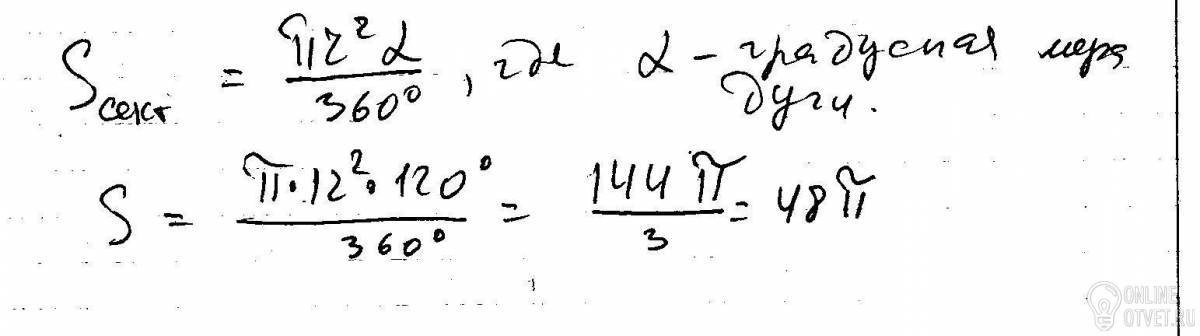 Sсект = πr²α / 360°, где α – градусная мера
дуги.
S = π·12²·120° / 360° = 144π / 3 = 48π
ONLINE
OTVET.RU